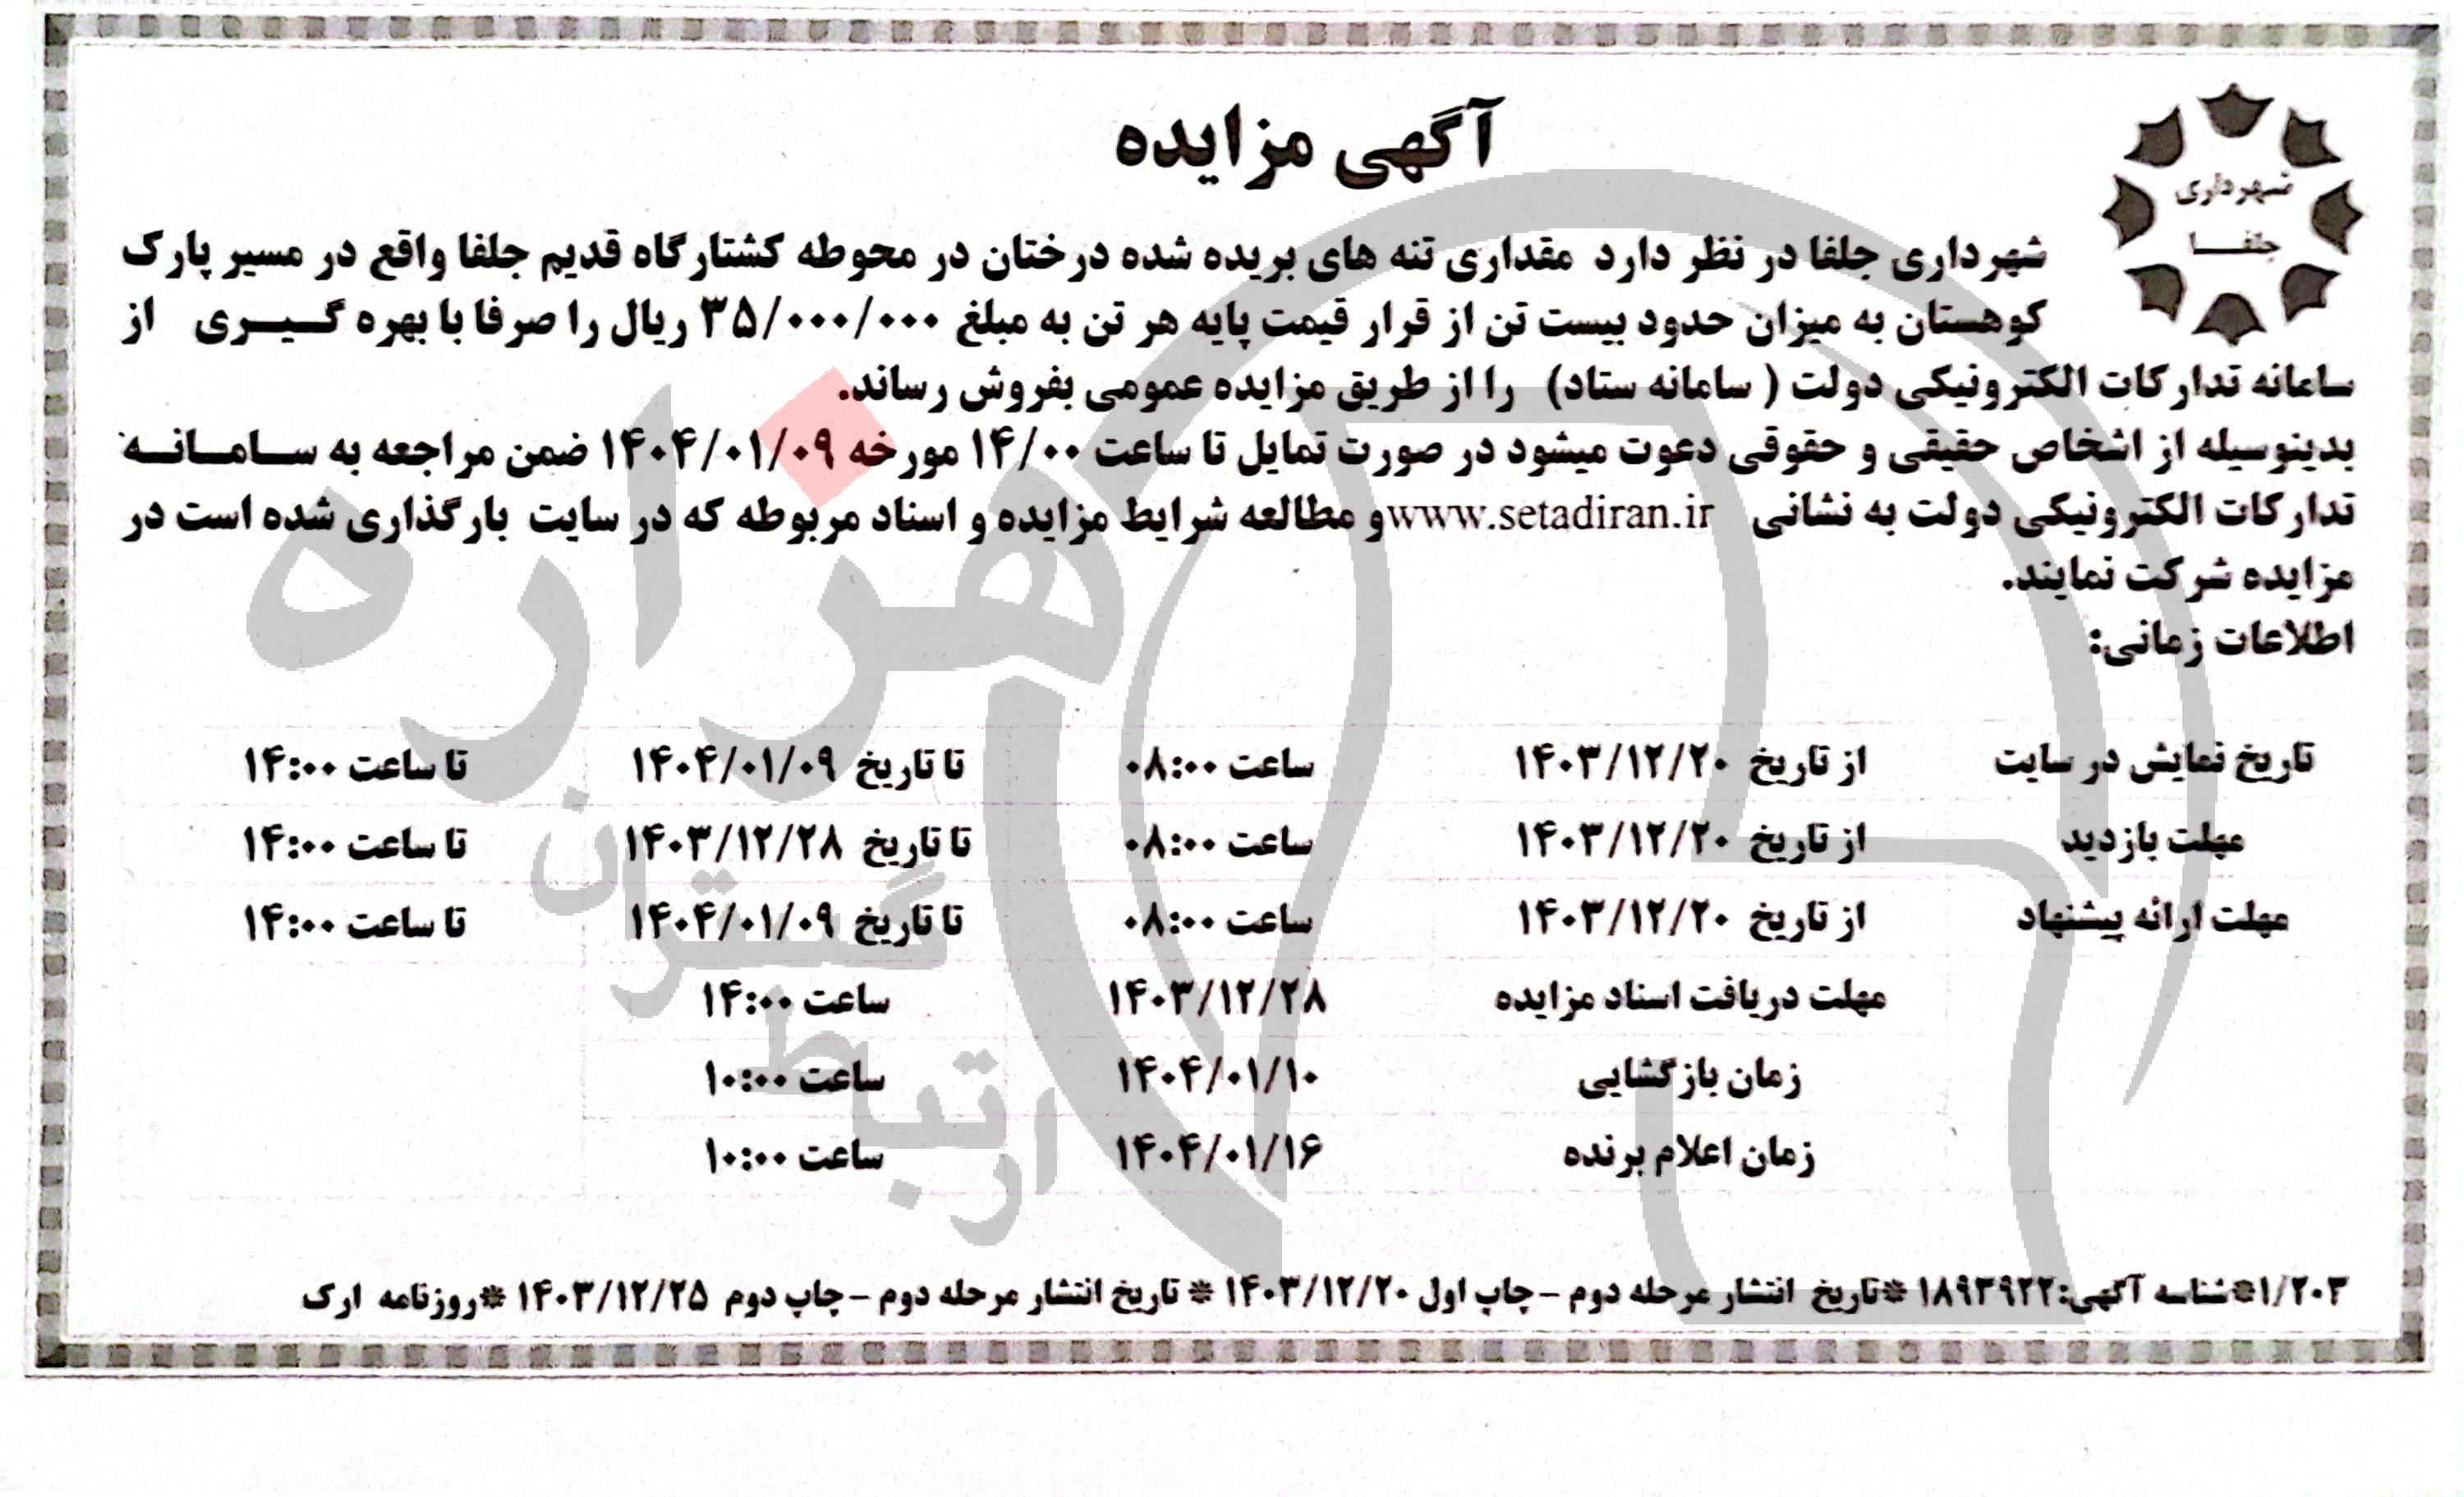 آگهی مزایده
شهرداری
جلفا
شهرداری جلفا در نظر دارد مقداری تنه های بریده شده درختان در محوطه کشتارگاه قدیم جلفا واقع در مسیر پارک
کوهستان به میزان حدود بیست تن از قرار قیمت پایه هر تن به مبلغ ۳۵/۰۰۰/۰۰۰ ریال را صرفا با بهره گیری از
سامانه تدارکات الکترونیکی دولت ( سامانه ستاد) را از طریق مزایده عمومی بفروش رساند.
بدینوسیله از اشخاص حقیقی و حقوقی دعوت میشود در صورت تمایل تا ساعت ۱۴/۰۰ مورخه ۱۴۰۴/۰۱/۰۹ ضمن مراجعه به سامانه
تدارکات الکترونیکی دولت به نشانی www.setadiran.ir و مطالعه شرایط مزایده و اسناد مربوطه که در سایت بارگذاری شده است در
مزایده شرکت نمایند.
اطلاعات زمانی:
تاریخ نمایش در سایت از تاریخ ۱۴۰۳/۱۲/۲۰ ساعت ۰۸:۰۰ تا تاریخ ۱۴۰۴/۰۱/۰۹ تا ساعت ۱۴:۰۰
مهلت بازدید از تاریخ ۱۴۰۳/۱۲/۲۰ ساعت ۰۸:۰۰ تا تاریخ ۱۴۰۳/۱۲/۲۸ تا ساعت ۱۴:۰۰
مهلت ارائه پیشنهاد از تاریخ ۱۴۰۳/۱۲/۲۰ ساعت ۰۸:۰۰ تا تاریخ ۱۴۰۴/۰۱/۰۹ تا ساعت ۱۴:۰۰
مهلت دریافت اسناد مزایده ۱۴۰۳/۱۲/۲۸ ساعت ۱۴:۰۰
زمان بازگشایی ۱۴۰۴/۰۱/۱۰ ساعت ۱۰:۰۰
زمان اعلام برنده ۱۴۰۴/۰۱/۱۶ ساعت ۱۰:۰۰
۱/۲۰۳*شناسه آگهی:۱۸۹۳۹۲۲ *تاریخ انتشار مرحله دوم -چاپ اول ۱۴۰۳/۱۲/۲۰ * تاریخ انتشار مرحله دوم -چاپ دوم ۱۴۰۳/۱۲/۲۵ *روزنامه ارک
هزاره
گستران
ارتباط